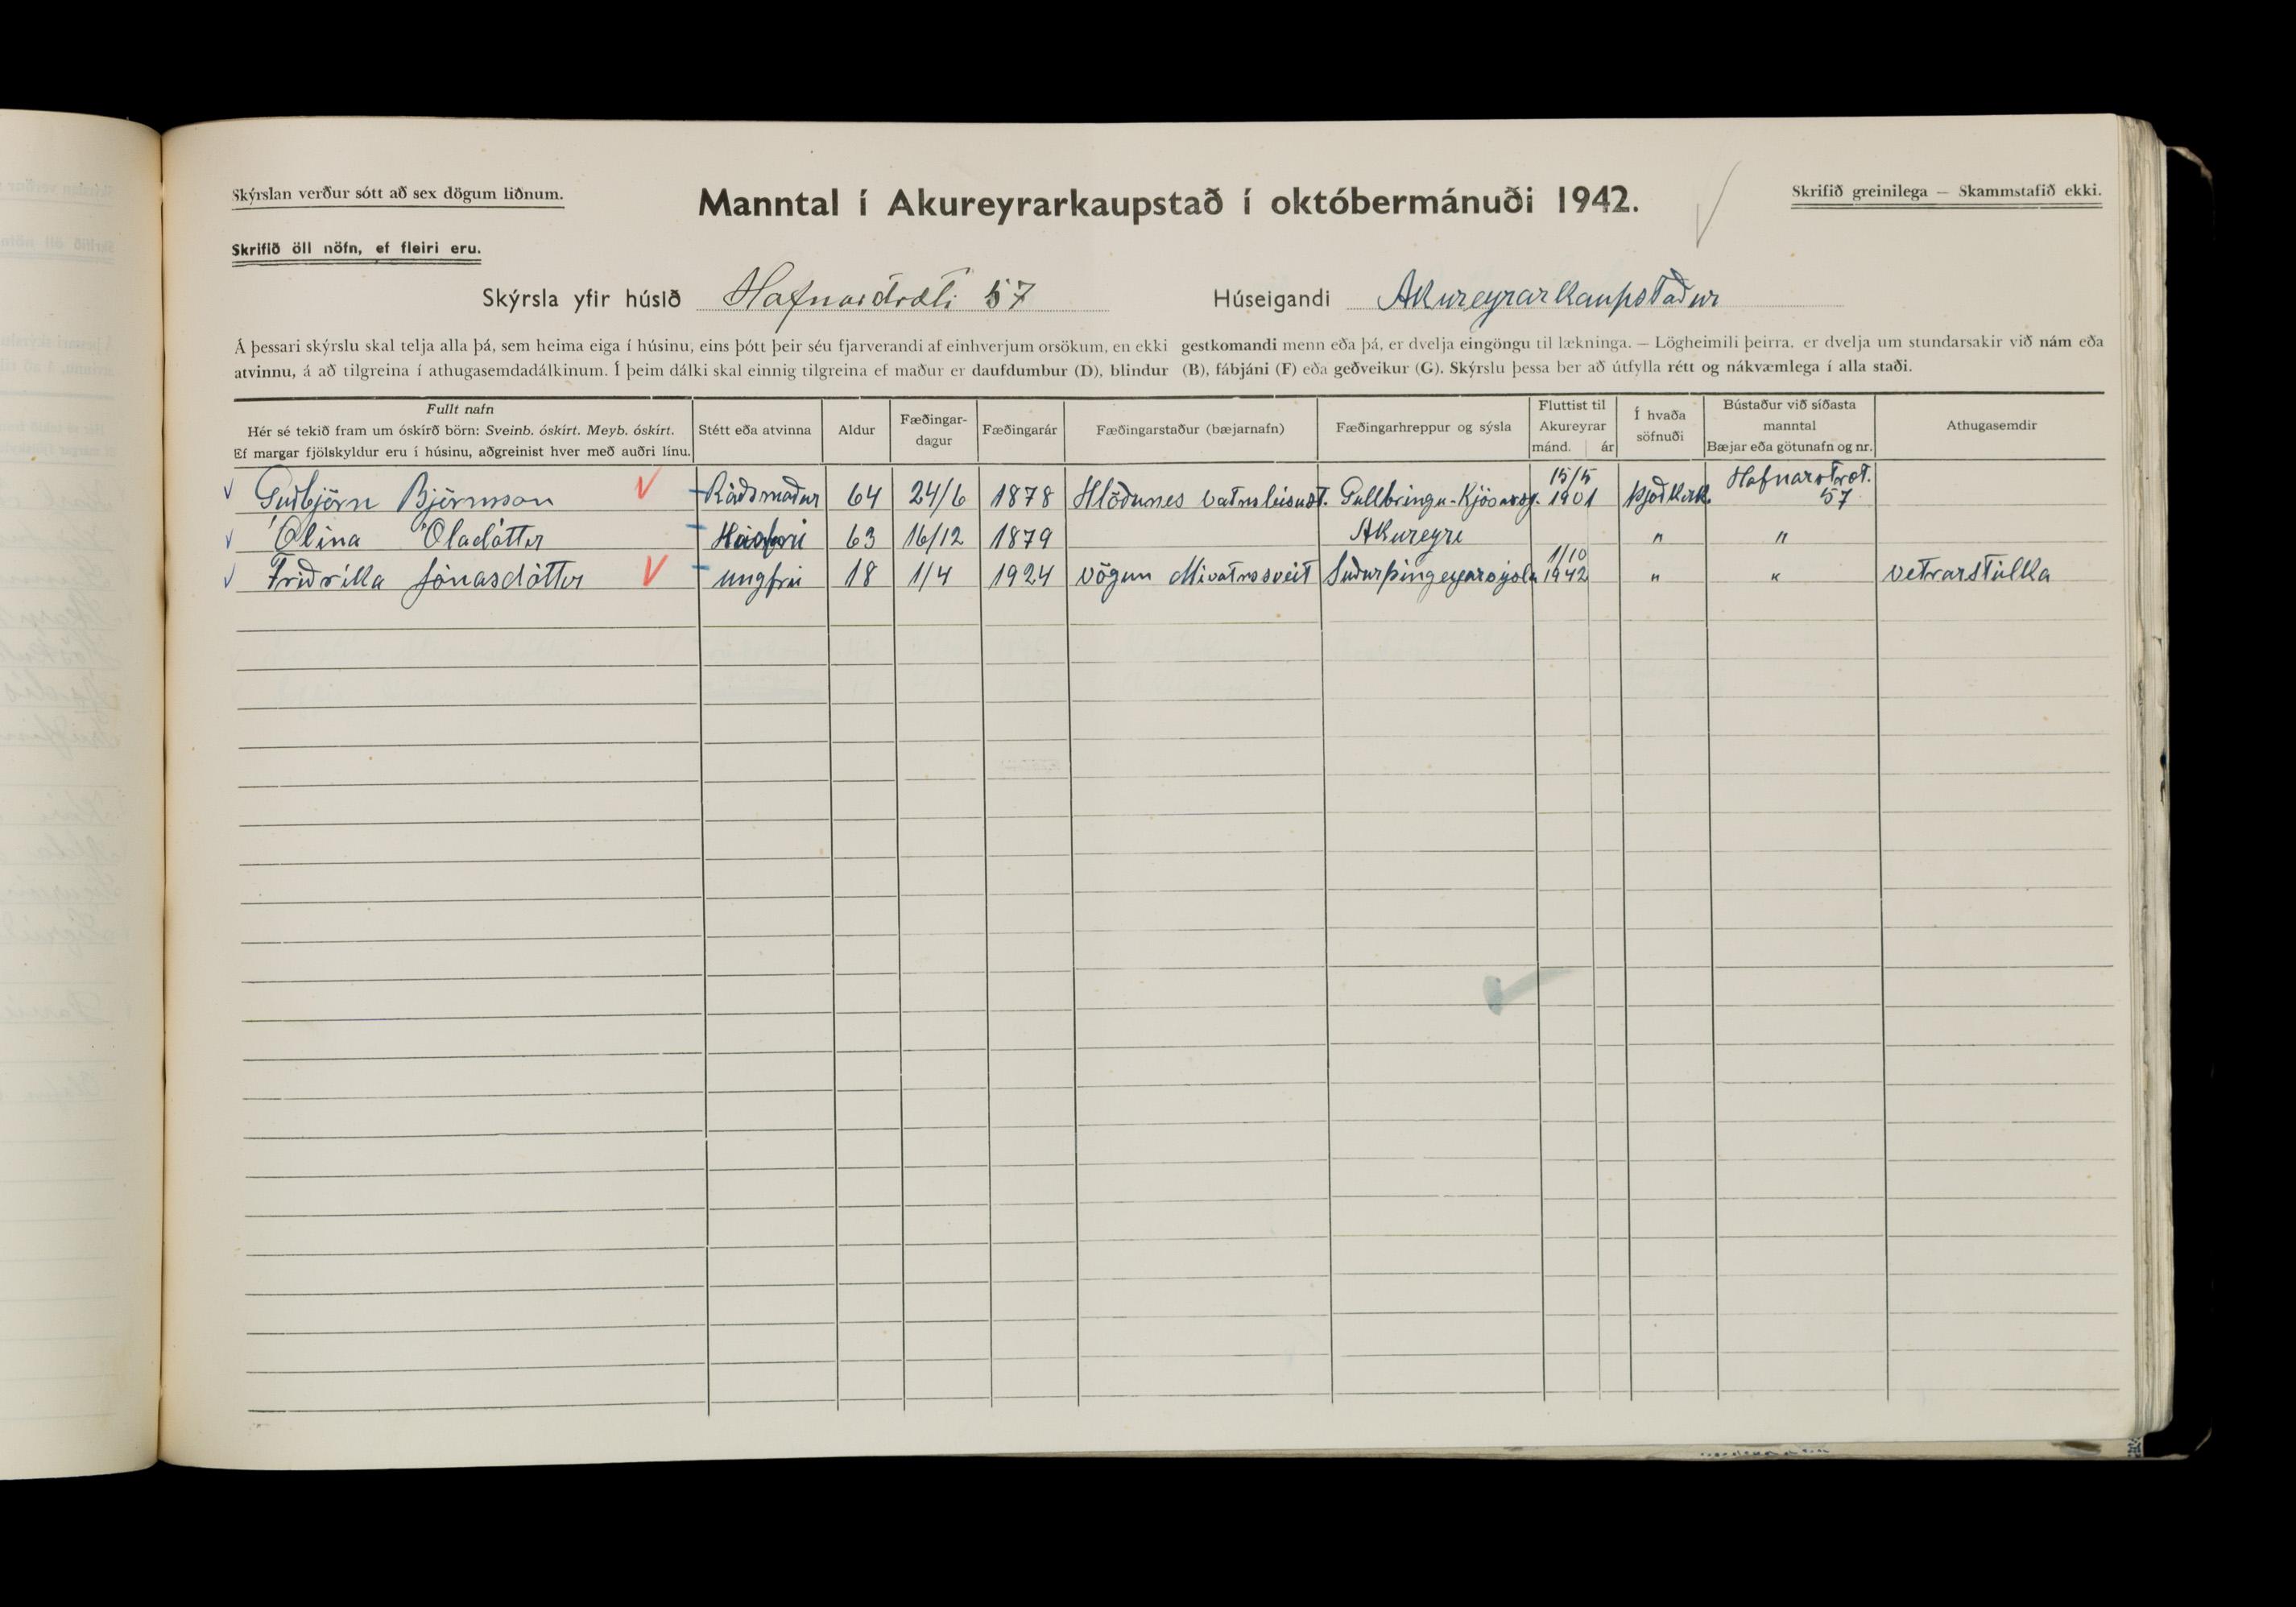 Skýrslan verður sótt að sex dögum liðnum.
Manntal í Akureyrarkaupstað í októbermánuði 1942.
Skrifið greinilega — Skammstafið ekki.
Skrifið öll nöfn, ef fleiri eru.
Skýrsla yfir húsið Hafnarstræti 57 Húseigandi Akureyrarkaupstaður
Á þessari skýrslu skal telja alla þá, sem heima eiga í húsinu, eins þótt þeir séu fjarverandi af einhverjum orsökum, en ekki gestkomandi menn eða þá, er dvelja eingöngu til lækninga. — Lögheimili þeirra, er dvelja um stundarsakir við nám eða
atvinnu, á að tilgreina í athugasemdadálkinum. Í þeim dálki skal einnig tilgreina ef maður er daufdumbur (D), blindur (B), fábjáni (F) eða geðveikur (G). Skýrslu þessa ber að útfylla rétt og nákvæmlega í alla staði.
Fullt nafn
Hér sé tekið fram um óskírð börn: Sveinb. óskírt. Meyb. óskírt.
Ef margar fjölskyldur eru í húsinu, aðgreinist hver með auðri línu.
Stétt eða atvinna
Aldur
Fæðingar-
dagur
Fæðingarár
Fæðingarstaður (bæjarnafn)
Fæðingarhreppur og sýsla
Fluttist til
Akureyrar
mánd. ár
Í hvaða
söfnuði
Bústaður við síðasta
manntal
Bæjar eða götunafn og nr.
Athugasemdir
Guðbjörn Björnsson Ráðsmaður 64 24/6 1878 Hlöðunes vatnsleisust. Gullbringu-Kjósarsy. 15/5 1901 Þjóðkirk. Hafnarstræt. 57
Ólína Óladóttir Húsfrú 63 16/12 1879 Akureyre " "
Friðrikka Jónasdóttir ungfrú 18 1/4 1924 vögun Mivatnssveit Suðurþingeyarsýsla 1/10 1942 " " vetrarstúlka